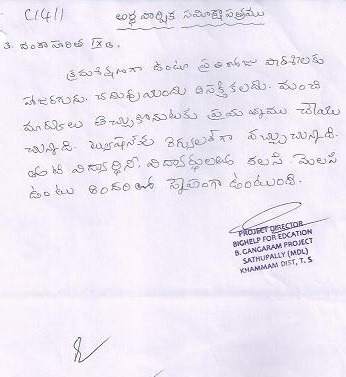 C1411
అర్ధ వార్షిక సమీక్షా పత్రము
3. వంకా సారిక IX C.
క్రమశిక్షణగా ఉంటూ ప్రతిరోజు పాఠశాలకు
హాజరగును. చదువుయందు ఆసక్తి కలదు. మంచి
మార్కులు తెచ్చుకొనుటకు ప్రయత్నము చేయు
చున్నది. ట్యూషన్‌కు రెగ్యులర్‌గా వచ్చుచున్నది.
తోటి విద్యార్థినీ, విద్యార్థులతో కలసి మెలసి
ఉంటు అందంతో స్నేహంగా ఉంటుంది.
PROJECT DIRECTOR
BIGHELP FOR EDCATION
B. GANGARAM PROJECT
SATHUPALLY (MDL)
KHAMMAM DIST, T. S